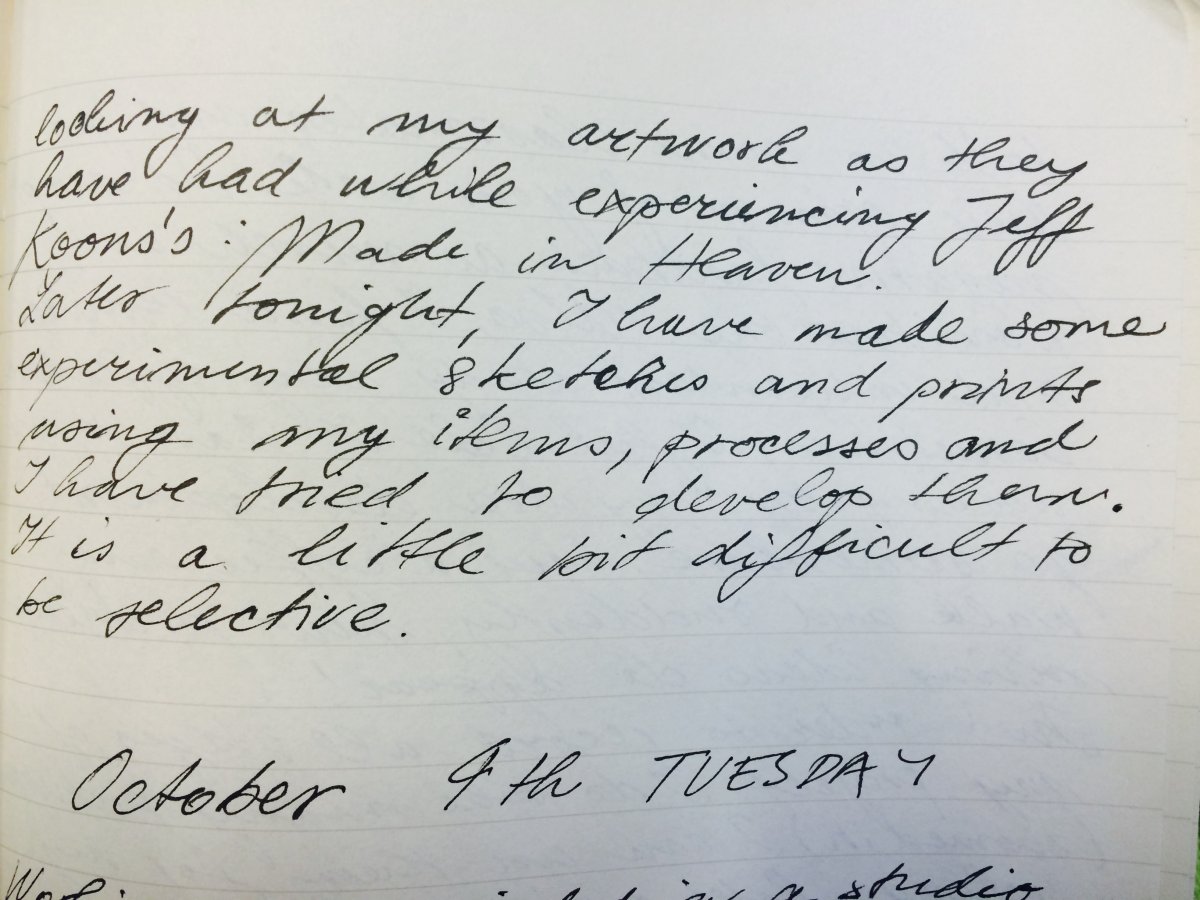 looking at my artwork as they
have had while experiencing Jeff
Koons's: Made in Heaven.
Later tonight, I have made some
experimental sketches and prints
using my items, processes and
I have tried to develop them.
It is a little bit difficult to
be selective.
October 9th TUESDAY
studio